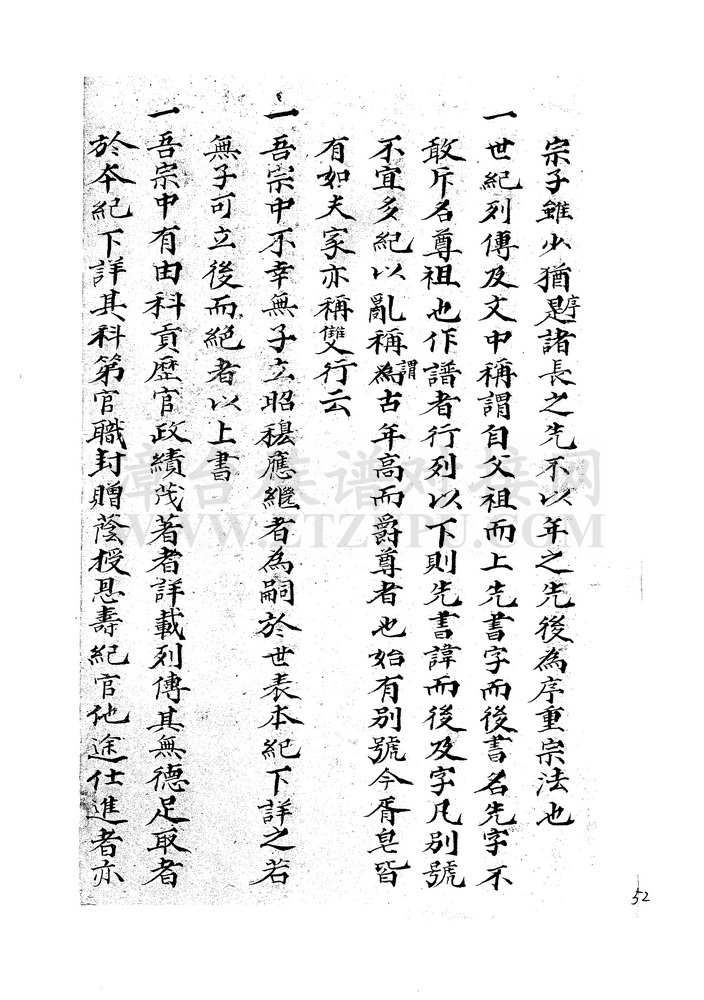 宗子雖少猶是序諸長之先不以年之先後為序重宗法也
一世紀列傳及文中稱謂自父祖而上先書字而後書名先字不
敢斥名尊祖也作譜者行列以下則先書諱而後及字凡別號
不宜多紀以亂稱謂為古年高而爵尊者也始有別號今胥皂皆
有如夫家亦稱雙行云
一吾宗中不幸無子立昭穆應繼者為嗣於世表本紀下詳之若
無子可立後而絕者以上書
一吾宗中有由科貢歷官政績茂著者詳載列傳其無德足取者
於本紀下詳其科第官職封贈蔭授恩壽紀官他途仕進者亦
52
漳台族谱对接网
WWW.ZTZUPU.COM